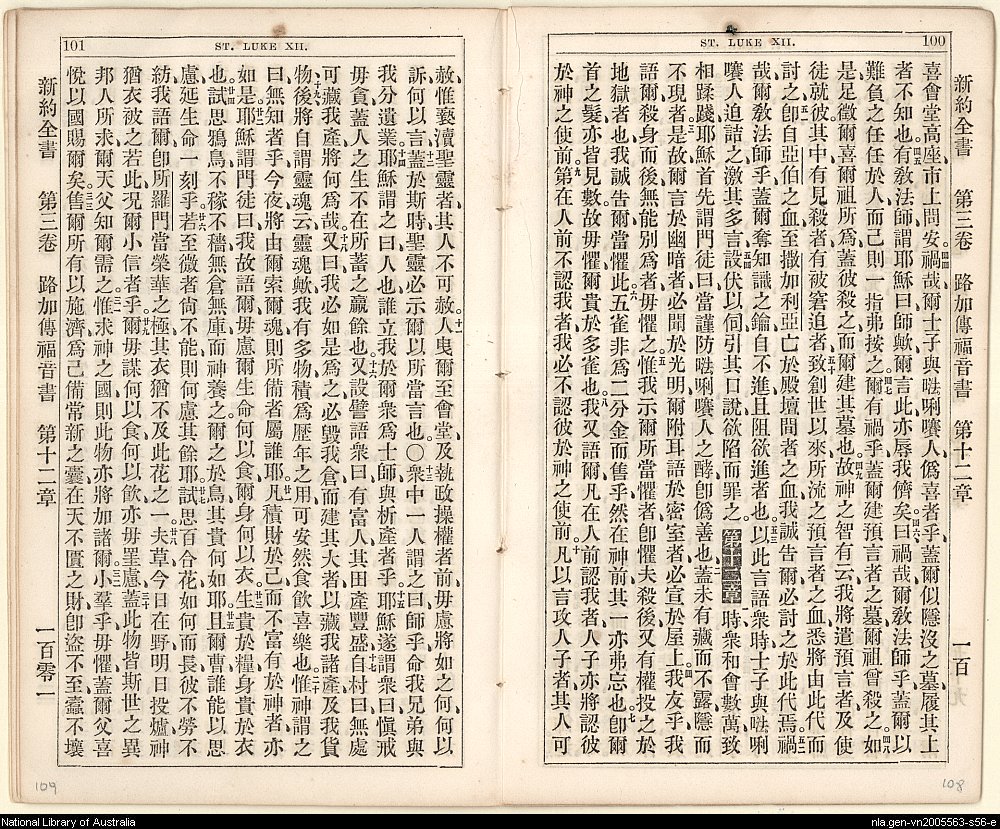 ST. LUKE XII.
100
新約全書　第三卷　路加傳福音書　第十二章　一百
喜會堂高座市上問安、四四禍哉、爾士子與㗭唎嚽人、僞喜者乎、蓋爾似隱沒之墓、履其上
者不知也、四五有敎法師、謂耶穌曰、師歟、爾言此、亦辱我儕矣、四六曰、禍哉、爾敎法師乎、蓋爾以
難負之任任於人、而己則一指弗按之、四七爾有禍乎、蓋爾建預言者之墓、爾祖曾殺之、四八如
是、足徵爾喜爾祖所爲、蓋彼殺之、而爾建其墓也、四九故神之智有云、我將遣預言者及使
徒就彼、其中有見殺者、有被窘迫者、五十致創世以來、所流之預言者之血、悉將由此代而
討之、五一卽自亞伯之血、至撒加利亞亡於殿壇間者之血、我誠吿爾、必討之於此代焉、五二禍
哉、爾敎法師乎、蓋爾奪知識之鑰、自不進、且阻欲進者也、五三以此言語衆時、士子與㗭唎
嚽人迫詰之、激其多言、五四設伏以伺、引其口說、欲陷而罪之。第十二章 時衆和會數萬、致
相蹂踐、耶穌首先謂門徒曰、當謹防㗭唎嚽人之酵、卽僞善也、二蓋未有藏而不露、隱而
不現者、三是故爾言於幽暗者、必聞於光明、爾附耳語於密室者、必宣於屋上、四我友乎、我
語爾、殺身而後無能別爲者、毋懼之、五惟我示爾所當懼者、卽懼夫殺後、又有權投之於
地獄者也、我誠吿爾當懼此、六五雀非爲二分金而售乎、然在神前、其一亦弗忘也、七卽爾
首之髮、亦皆見數、故毋懼、爾貴於多雀也、八我又語爾、凡在人前認我者、人子亦將認彼
於神之使前、九第在人前不認我者、我必不認彼於神之使前、十凡以言攻人子者、其人可
ST. LUKE XII.
101
赦、惟褻瀆聖靈者、其人不可赦、十一人曳爾至會堂、及執政操權者前、毋慮將如之何、何以
訴、何以言、十二蓋於斯時、聖靈必示爾以所當言也、〇十三衆中一人謂之曰、師乎、命我兄弟與
我分遺業、十四耶穌謂之曰、人也、誰立我於爾衆爲士師、與析產者乎、十五耶穌遂謂衆曰、愼戒
毋貪、蓋人之生、不在所蓄之贏餘也、十六又設譬語衆曰、有富人、其田產豐盛、十七自村曰、無處
可藏我產、將何爲哉、十八又曰、我必如是爲之、必毀我倉而建其大者、以藏我諸產及我貨
物、十九後將自謂靈魂云、靈魂歟、我有多物、積爲歷年之用、可安然食飲喜樂也、二十惟神謂之
曰、無知者乎、今夜將由爾索爾魂、則所備者屬誰耶、廿一凡積財於己、而不富有於神者、亦
如是、廿二耶穌謂門徒曰、我故語爾、毋慮爾生命、何以食、爾身何以衣、廿三生貴於糧、身貴於衣
也、廿四試思鴉鳥、不稼不穡、無倉無庫、而神養之、爾之於鳥、其貴何如耶、廿五且爾曹誰能以思
慮延生命一刻乎、廿六若至微者尙不能、則何慮其餘耶、廿七試思百合花如何而長、彼不勞不
紡、我語爾、卽所羅門當榮華之極、其衣猶不及此花之一、廿八夫草今日在野、明日投爐、神
猶衣被之若此、况爾小信者乎、廿九爾毋謀何以食、何以飲、亦毋罣慮、三十蓋此物皆斯世之異
邦人所求、爾天父知爾需之、三一惟求神之國、則此物亦將加諸爾、三二小羣乎、毋懼、蓋爾父喜
悅以國賜爾矣、三三售爾所有以施濟、爲己備常新之囊、在天不匱之財、卽盜不至、蠹不壞
新約全書　第三卷　路加傳福音書　第十二章　一百零一
109
108
National Library of Australia
nla.gen-vn2005563-s56-e